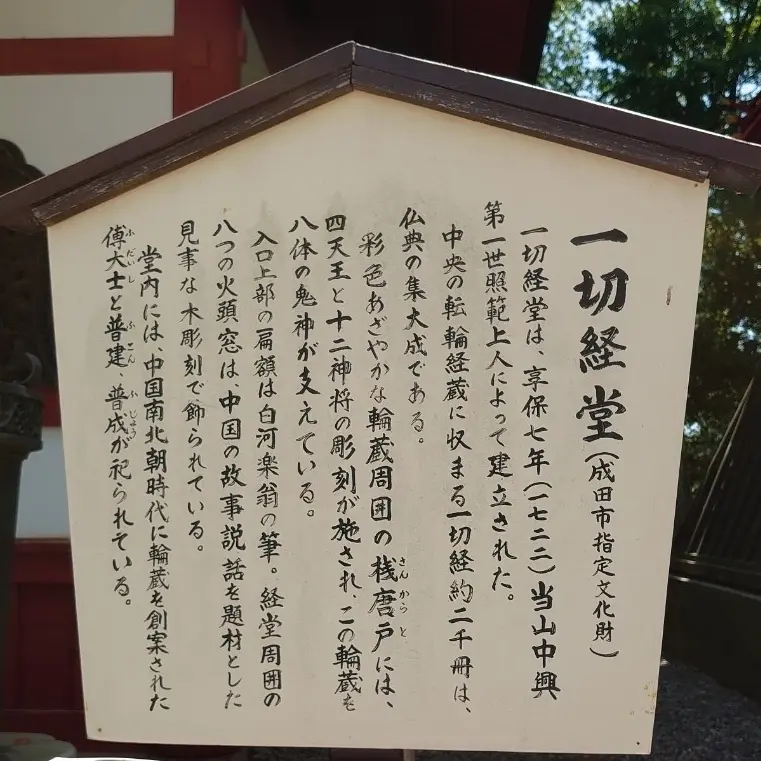 一切経堂(成田市指定文化財)
一切経堂は、享保七年(一七二二)当山中興
第一世照範上人によって建立された。
中央の転輪経蔵に収まる一切経約二千冊は、
仏典の集大成である。
彩色あざやかな輪蔵周囲の桟唐戸には、
さんからと
四天王と十二神将の彫刻が施され、この輪蔵を
八体の鬼神が支えている。
入口上部の扁額は白河楽翁の筆。経堂周囲の
八つの火頭窓は、中国の故事説話を題材とした
見事な木彫刻で飾られている。
堂内には、中国南北朝時代に輪蔵を創案された
傅大士と普建、普成が祀られている。
ふだいし ふこん ふじょう